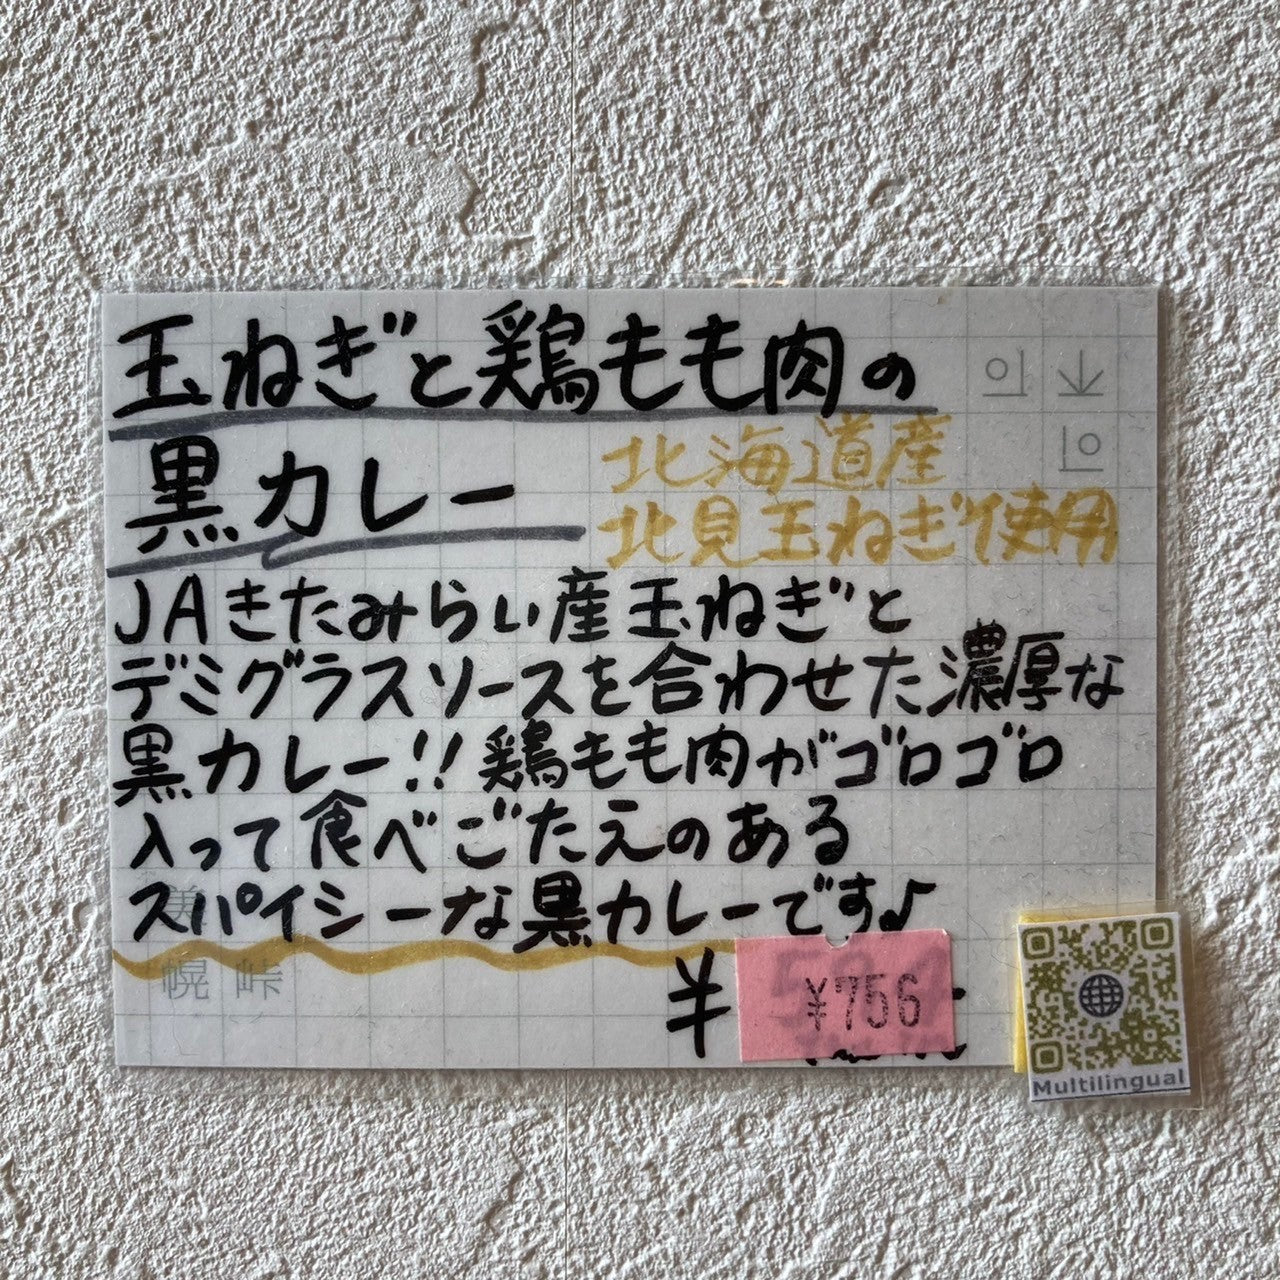 玉ねぎと鶏もも肉の
黒カレー
北海道産
北見玉ねぎ使用
JAきたみらい産玉ねぎと
デミグラスソースを合わせた濃厚な
黒カレー!!鶏もも肉がゴロゴロ
入って食べごたえのある
スパイシーな黒カレーです♪
美
幌 峠
¥
¥756
Multilingual